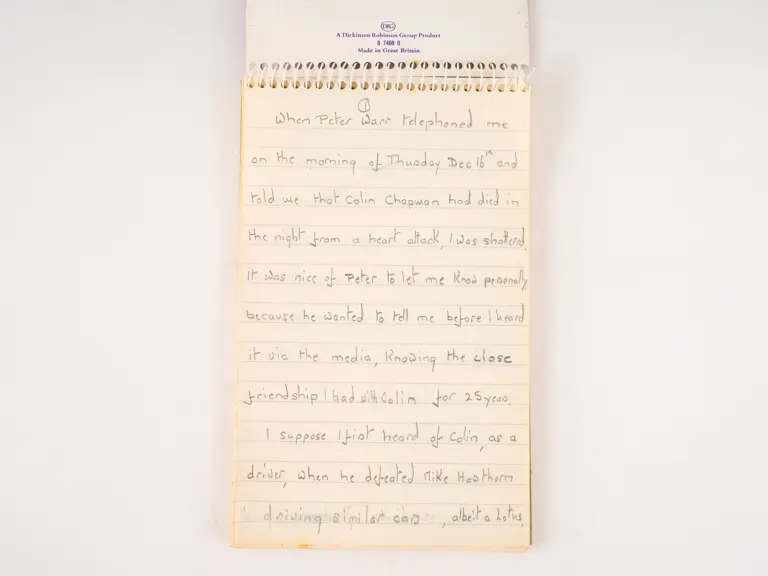 DRG
A Dickinson Robinson Group Product
Made in Great Britain
1
When Peter Warr telephoned me
on the morning of Thusday Dec 16th and
told me that Colin Chapman had died in
the night from a heart attack, I was shattered.
It was nice of Peter to let me know personally,
because he wanted to tell me before I heard
it via the media, knowing the close
friendship I had with Colin for 25 years.
I suppose I first heard of Colin, as a
driver, when he defeated Mike Hawthorn
driving similar cars, albeit a Lotus,